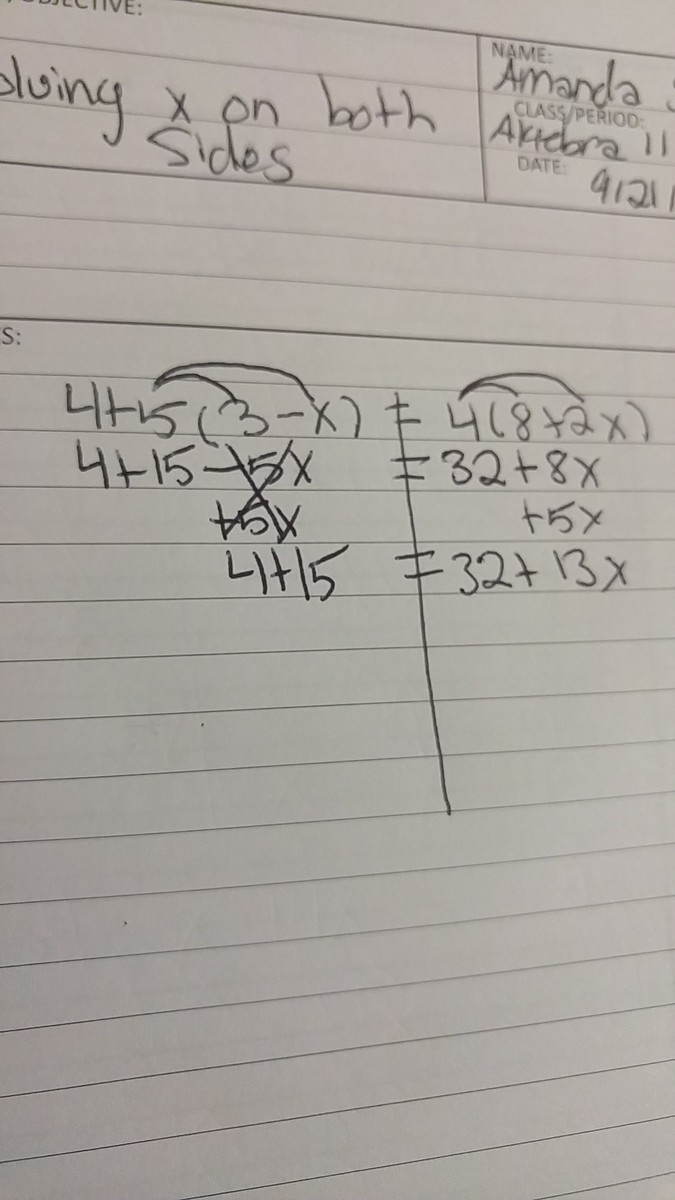 OBJECTIVE:
olving x on both
Sides
NAME:
Amanda
CLASS/PERIOD:
Algebra 11
DATE:
9/21/
S:
4+5(3-x) = 4(8+2x)
4+15-5x = 32+8x
+5x +5x
4+15 = 32+13x